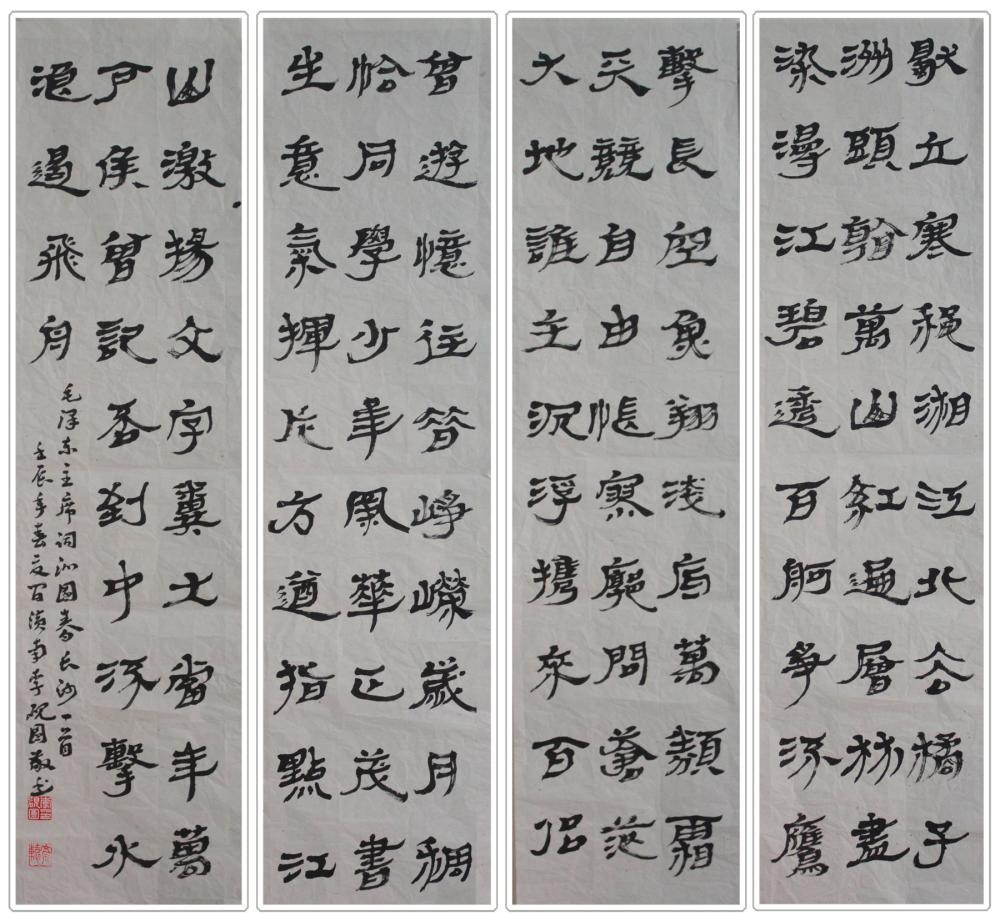 獨立寒秋湘江北去橘子
洲頭看萬山紅遍層林盡
染漫江碧透百舸爭流鷹
擊長空魚翔淺底萬類霜
天競自由悵寥廓問蒼茫
大地誰主沉浮攜來百侶
曾遊憶往昔崢嶸歲月稠
恰同學少年風華正茂書
生意氣揮斥方遒指點江
山激揚文字糞土當年萬
户侯曾記否到中流擊水
浪遏飛舟
毛泽东主席词沁園春长沙一首
壬辰年春滇南李砚園敬书